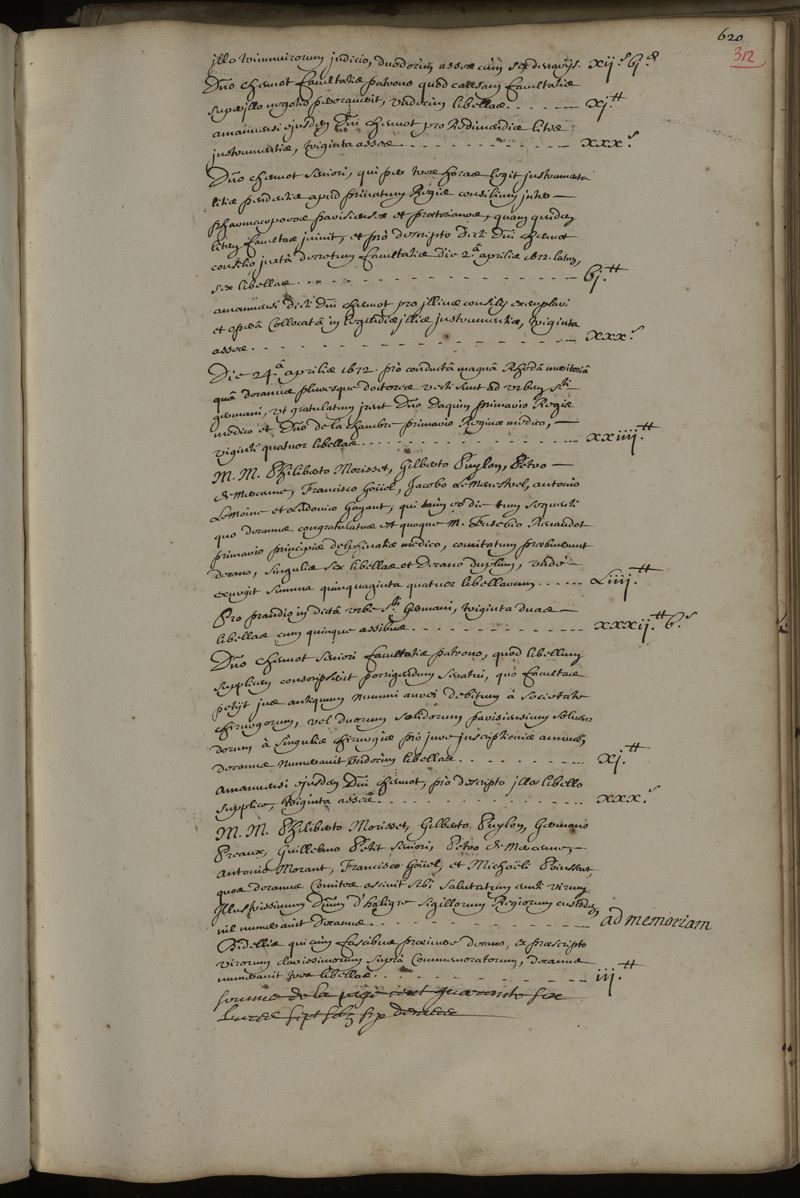 620
312
illo triumvirorum judicio, duodecim asses cum sex denariis. xij.s 6.d
Dno Chemot Facultatis patrono quod causam Facultatis
super illo negotio peroraverit, undecim libellae. xj.tt
amanuensi ejusdem Dni Chemot pro redimendis litis
instrumentis, triginta asses xxx.s
Dno Chemot seniori, qui per tres horas legit instrumenta
litis pendentis apud privatum Regis consilium inter
pharmacopoeos parisienses et praetorianos, quam quidem
litem Facultas juvit, et pro descripto dicti Dni Chemot
consilio juxta decretum Facultatis die 2.a aprilis 1672. latum,
sex libellae. 6j.tt
amanuensi dicti Dni Chemot pro illius consilij exemplari
et opera collocata in legendis illis instrumentis, triginta
asses. xxx.s
Die 24.a aprilis 1672. pro conducta magna Rheda meritoria
qua decanus pluresque doctores vecti sunt ad urbem Sti
germani, ut gratulatum irent Dno Daquin primario Regis
medico et Dno de la Chambre primario Reginae medico,
viginti quatuor libellae xxiiij.tt
M. M. Philiberto Morisset, Gilberto Puylon, Petro
de Mercenne, Francisco Goüel, Jacobo Le Mercstrel, antonio
Le Moine et Ludovico Gayant, qui tum eo die tum sequenti
quo decanus congratulatus est quoque M. Eusebio Renaudot
primario principis delphinatis medico, comitatum praebuerunt
decano, singulis sex libellae et decano duplum, unde
exurgit summa quinquaginta quatuor libellarum Liiij.tt
Pro prandio in dicta urbe Sti Germani, triginta duae
libellae cum quinque assibus. xxxij.tt 6.s
Dno Chemot seniori Facultatis patrono, quod libellum
supplicem conscripserit porrigendum senatui, quo Facultas
petijt jus antiquum nummi aurei debitum à societate
chirurgorum, vel duorum solidorum parisiensium solven
dorum à singulis chirurgis pro jure inscriptionis annuae,
decanus numeravit undecim libellas xj.tt
amanuensi ejusdem Dni Chemot, pro descripto illo libello
supplice, triginta asses. xxx.s
M. M. Philiberto Morisset, Gilberto Puylon, Germano
Preaux, Guillelmo Petit seniori, Petro de Mercenne,
Antonio Morant, Francisco Goüel, et Michaëli
quos decanus Comites ascivit sibi salutatum eunti virum
Illustrissimum Dnum d'haligre sigillorum Regiorum custodem,
nil numeravit Decanus. ad memoriam
Bidellis qui cum fascibus praeiverunt decano, ex praescripto
virorum clarissimorum supra Commemoratorum, decanus
numeravit tres libellas. iij.tt
somme de la page cent quarante six
livres sept solz six deniers